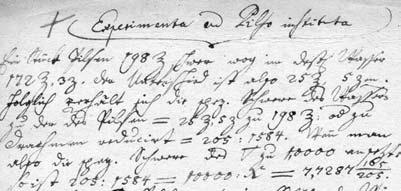 Experimenta ad Pilso instituta
Ein Stück Pilsen 198 ℥ schwer wog im destill. Wasser
172 ℥, 3 ʒ. der Unterschied ist also 25 ℥ 5 ʒ.
folglich verhält sich die spez. Schwere des Wassers
zu der des Pilsen = 25 ℥ 5 ʒ zu 198 ℥. od zu
Drachmen reducirt = 205 : 1584. Wenn man
also die spez. Schwere des zu 10000
so ist 205 : 1584 = 10000 : X = 7,7287 165/205.